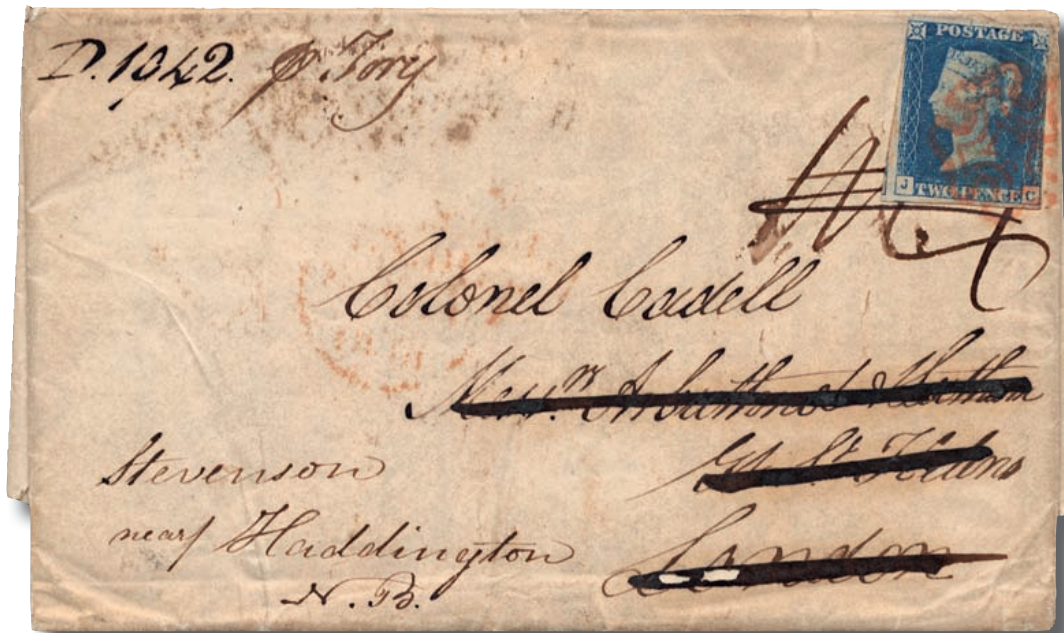 D. 1942. p Tory
POSTAGE
J TWO PENCE C
Colonel Cadell
Messrs. Arbuthnot & Latham
Gt. St. Helens
London
Stevenson
near Haddington
N. B.